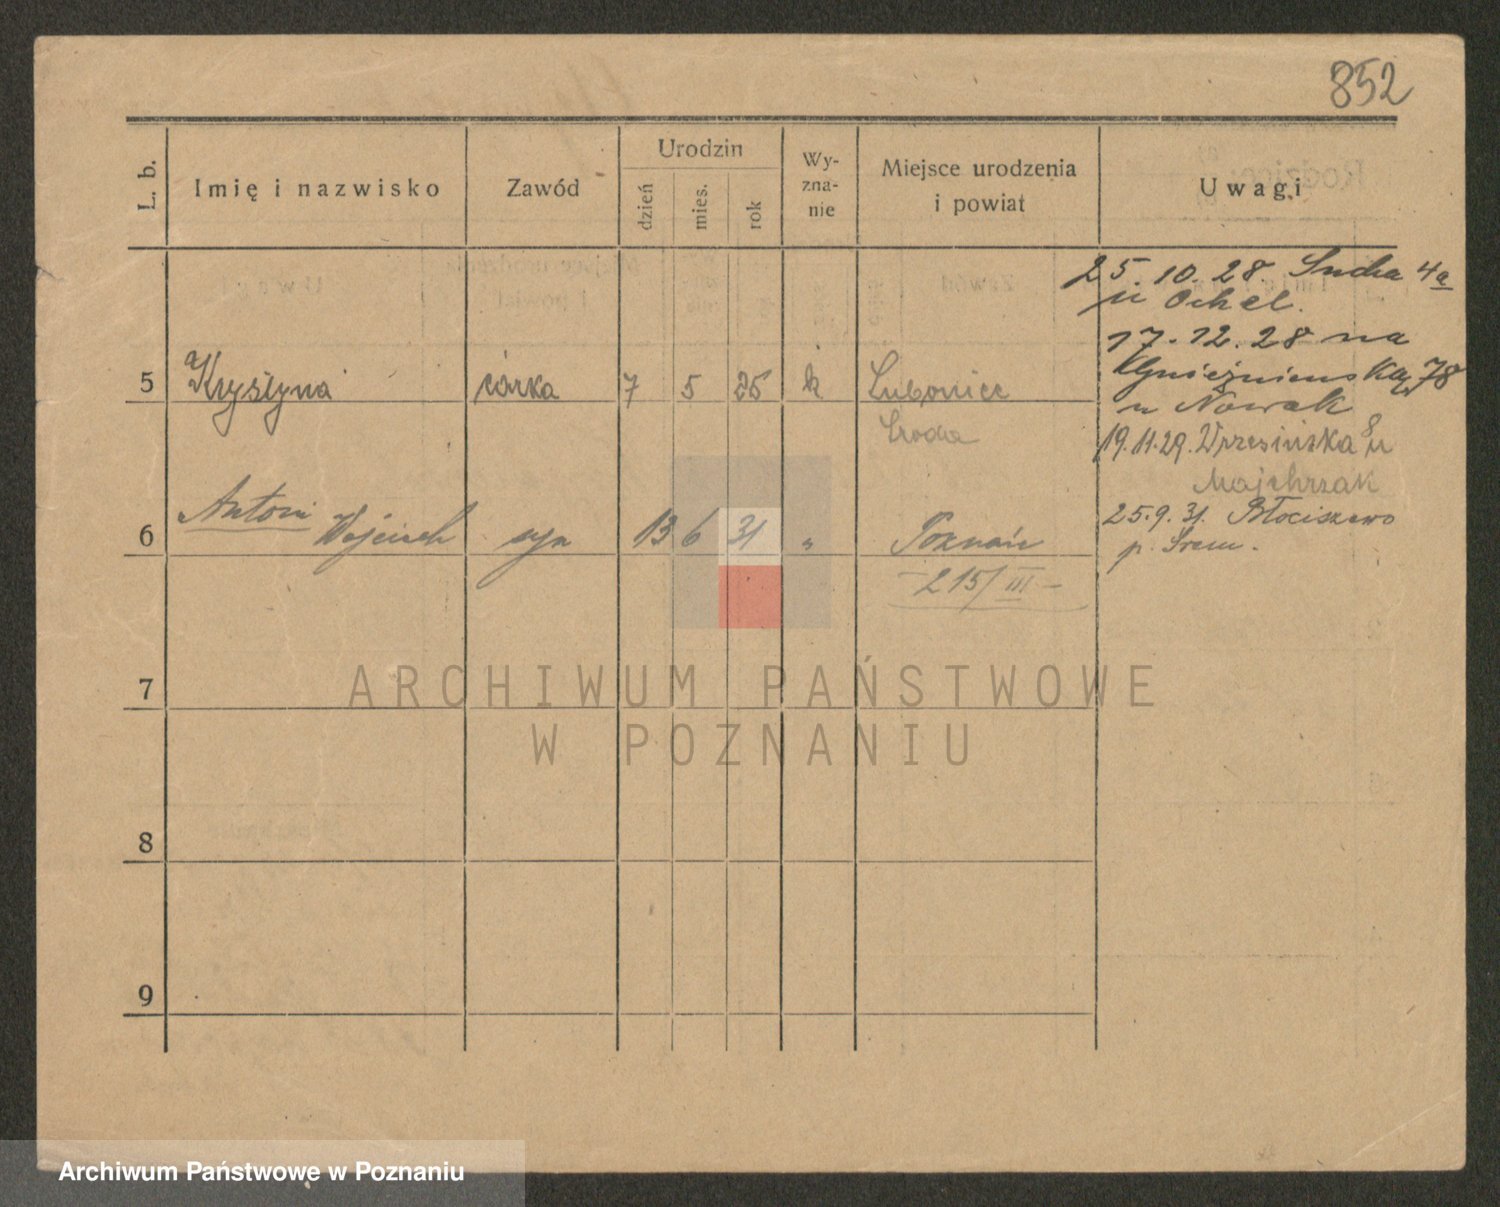 852
L. b.
Imię i nazwisko
Zawód
Urodzin
dzień
mies.
rok
Wy-
zna-
nie
Miejsce urodzenia
i powiat
Uwagi
25.10.28. Sucha 4a
u Ochel.
17.12.28 na
Gnieźnieńską 78
u Nowak
19.11.29. Wrzesińska 8 u
Majchrzak
25.9.31. Błociszewo
p. Śrem.
5
Krystyna
córka
7
5
25
k
Środa
6
Antoni Wojciech
syn
13
6
31
"
Poznań
- 215/III -
7
8
9
ARCHIWUM PAŃSTWOWE
W POZNANIU
Archiwum Państwowe w Poznaniu